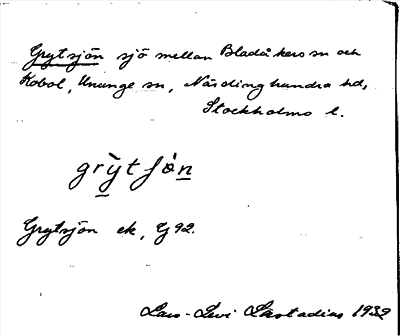 Grytsjön sjö mellan Bladåkers sn och
Kobol, Ununge sn, Närdinghundra hd,
Stockholms l.
grỳtʃön
Grytsjön ek, G 92.
Lars-Levi Læstadius 1932